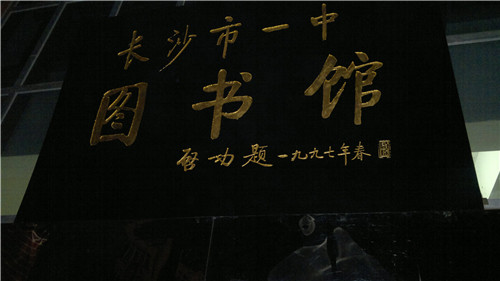 长沙市一中
图书馆
启功题一九九七年春